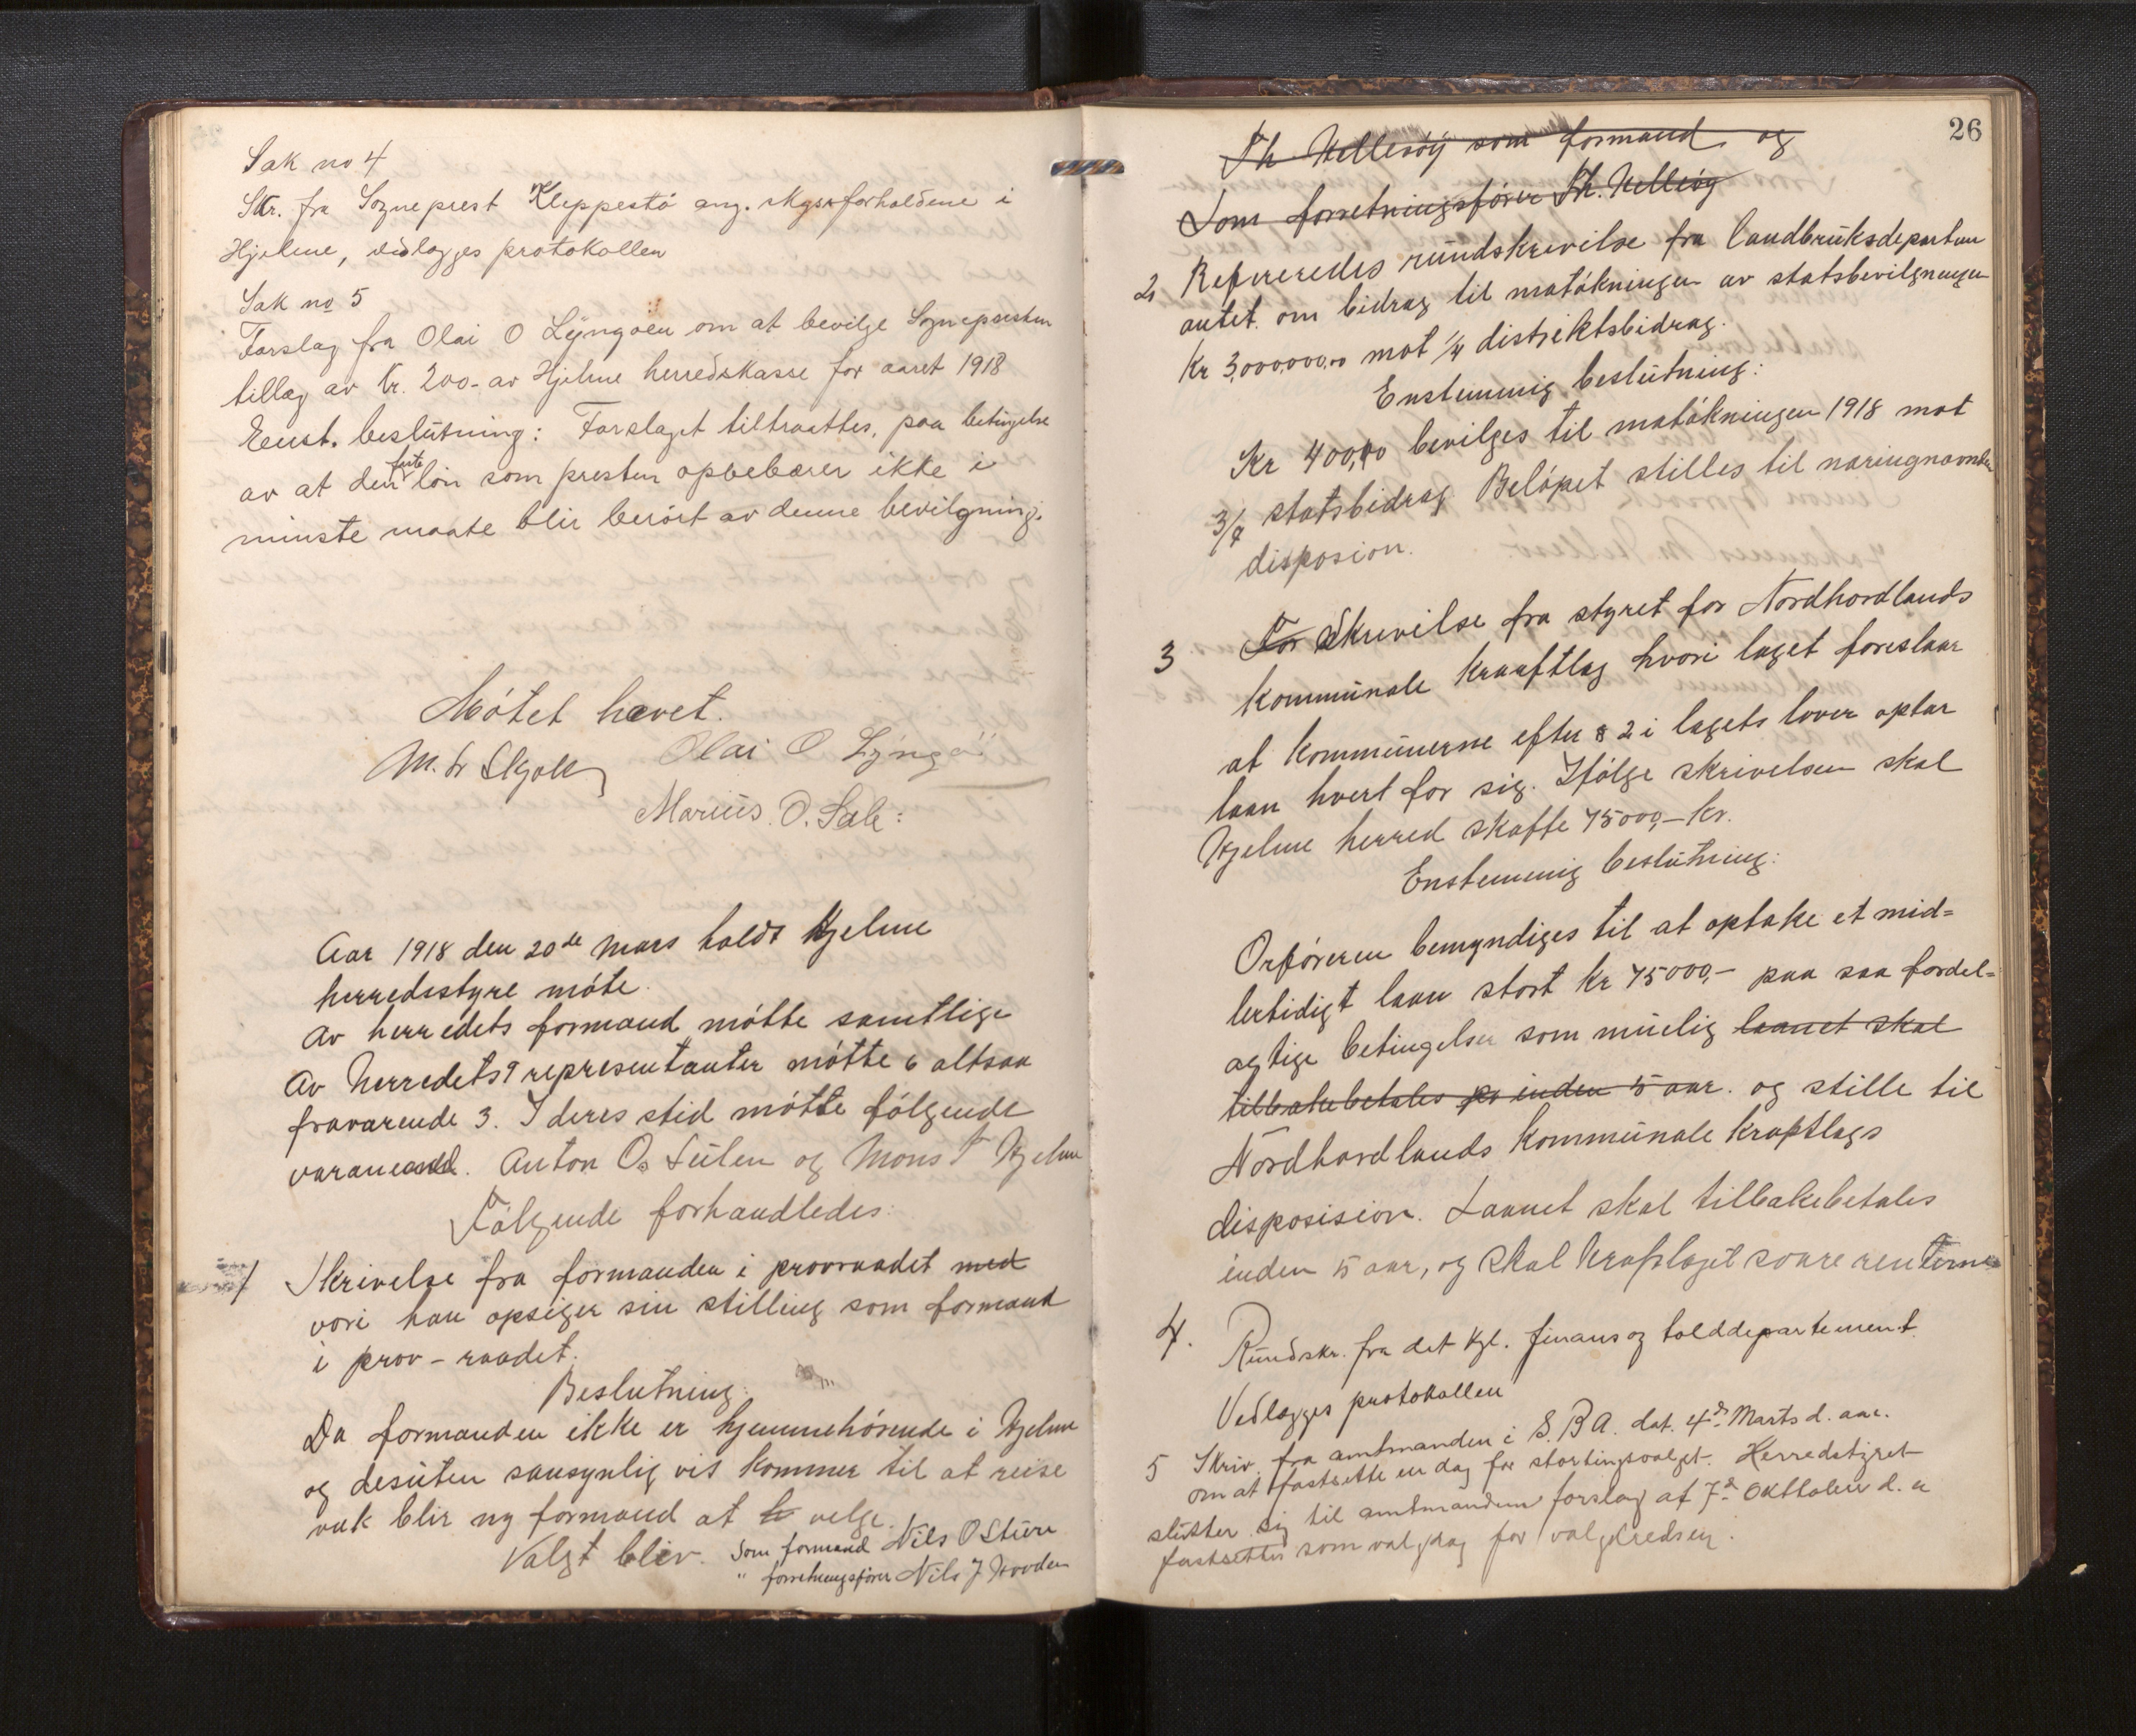 Sak no 4
Skr. fra Sogneprest Kleppestö ang. forholdene i
Hjelme, vedlægges protokollen
Sak no 5
Forslag fra Olai O Lyngøen om at bevilge Sognepresten
tillæg av kr. 200.- av Hjelme herredskasse for aaret 1918
Enst. beslutning: Forslaget tiltraattes, paa betingelse
av at den faste lön som presten oppebærer ikke i
minste maate blir berört av denne bevilgning.
Mötet hævet.
Olai O Lyngö
Marius. O. Sæle:
Aar 1918 den 20de Mars holdt Hjelme
herredsstyre möte.
Av herredets formænd mötte samtlige
Av Herredets 9 representanter mötte 6 altsaa
fraværende 3. I deres sted mötte fölgende
varamænd. Anton O. Sulen og Mons T Hjelme
Fölgende forhandledes:
1 Skrivelse fra formanden i provraadet med
vori han opsiger sin stilling som formand
i prov-raadet.
Beslutning:
Da formanden ikke er hjemmehörende i Hjelme
og desuten sansynlig vis kommer til at reise
væk blir ny formand at velge.
Valgt blev. Som formand Nils O Sture
" forretningsförer Nils J Hovden
26
Th Hellesöy som formand og
Som forretningsförer Th. Hellesöy
2 Refereredes rundskrevilse fra landbruksdepartem
antet. om bidrag til matökningen av statsbevilgningen
Kr 3,000,000,00 mot 1/4 distriktsbidrag.
Enstemmig beslutning:
Kr 400,00 bevilges til matökningen 1918 mot
3/4 statsbidrag. Belöpet stilles til næringnævndens
disposion.
3 For Skrevilse fra styret for Nordhordlands
Kommunale Kraaftlag hvori laget foreslaar
at Kommunerne efter § 2 i lagets lover optar
laan hvert for sig. Ifölge skrivelsen skal
Hjelme herred skaffe 75000,- kr.
Enstemmig beslutning:
Orföreren bemyndiges til at optake et mid=
lertidigt laan stort kr 75000,- paa saa fordel=
agtige betingelser som muelig laanet skal
tilbakebetales inden 5 aar. og stille til
Nordhordlands Kommunale Kraftlags
disposision. Laanet skal tilbakebetales
inden 5 aar, og skal kraflaget svare renterne
4. Rundskr. fra det kgl. finans og tolddepartement.
Vedlægges protokollen
5 Skriv. fra amtmanden i S. B A. dat. 4de Marts d. aar.
om at fastsætte en dag for stortingsvalget. Herredstyret
slutter sig til amtmandens forslag at 7de Okttober d. a
fastsettes som valgdag for valgkredsen.